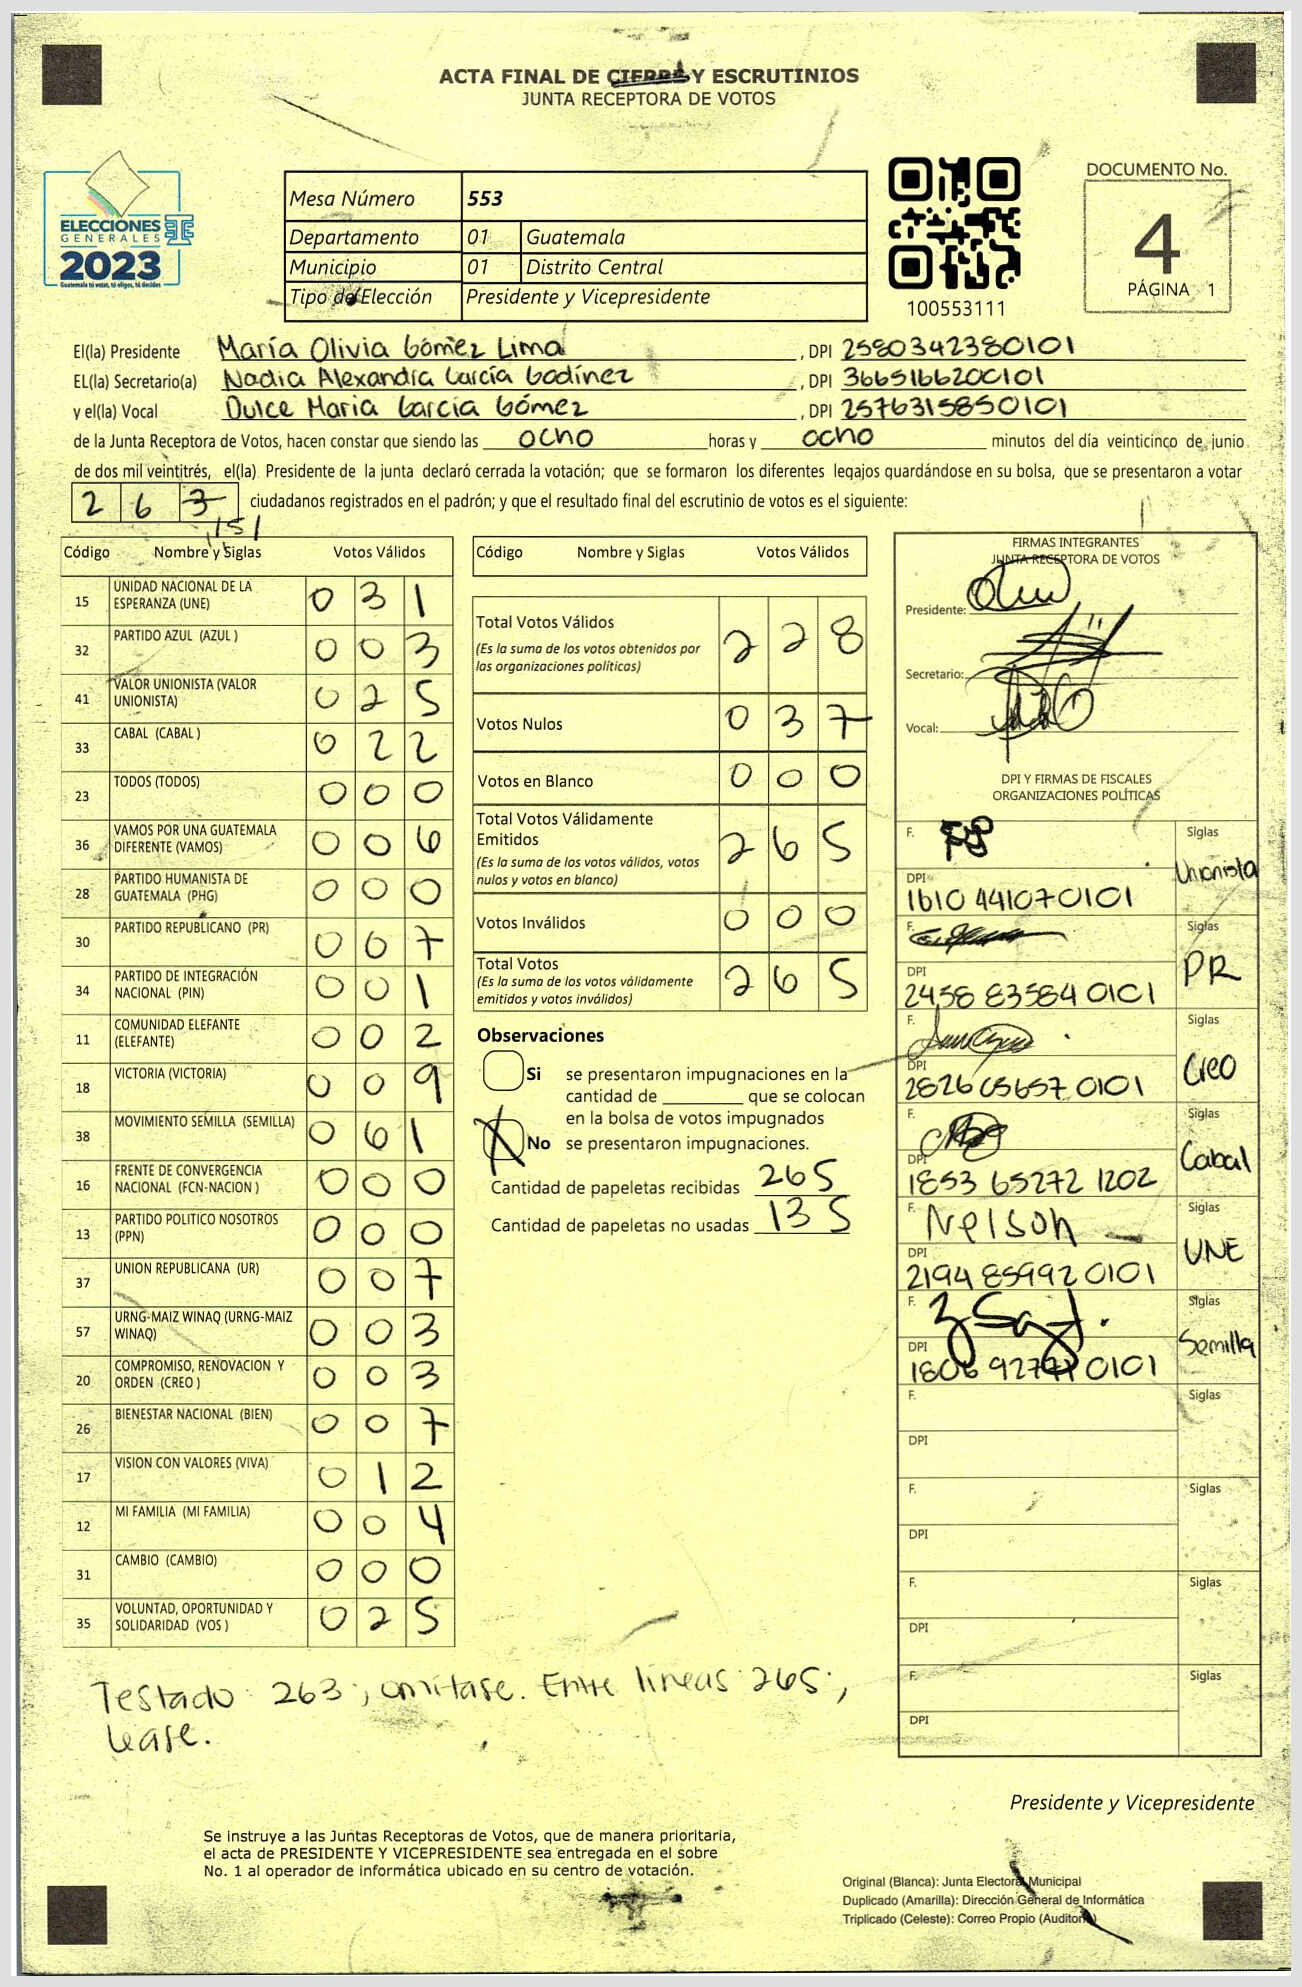 ACTA FINAL DE CIERRE Y ESCRUTINIOS
JUNTA RECEPTORA DE VOTOS
ELECCIONES
GENERALES
2023
Guatemala tú votas, tú eliges, tú decides
Mesa Número 553
Departamento 01 Guatemala
Municipio 01 Distrito Central
Tipo de Elección Presidente y Vicepresidente
100553111
DOCUMENTO No.
4
PÁGINA 1
El(la) Presidente María Olivia Gómez Lima , DPI 2580342380101
EL(la) Secretario(a) Nadia Alexandra García Godínez , DPI 3665166200101
y el(la) Vocal Dulce María García Gómez , DPI 2576315850101
de la Junta Receptora de Votos, hacen constar que siendo las ocho horas y ocho minutos del día veinticinco de junio
de dos mil veintitrés, el(la) Presidente de la junta declaró cerrada la votación; que se formaron los diferentes legajos guardándose en su bolsa, que se presentaron a votar
2 6 3 ciudadanos registrados en el padrón; y que el resultado final del escrutinio de votos es el siguiente:
Código Nombre y Siglas Votos Válidos
15 UNIDAD NACIONAL DE LA ESPERANZA (UNE) 0 3 1
32 PARTIDO AZUL (AZUL ) 0 0 3
41 VALOR UNIONISTA (VALOR UNIONISTA) 0 2 5
33 CABAL (CABAL ) 0 2 2
23 TODOS (TODOS) 0 0 0
36 VAMOS POR UNA GUATEMALA DIFERENTE (VAMOS) 0 0 6
28 PARTIDO HUMANISTA DE GUATEMALA (PHG) 0 0 0
30 PARTIDO REPUBLICANO (PR) 0 0 7
34 PARTIDO DE INTEGRACIÓN NACIONAL (PIN) 0 0 1
11 COMUNIDAD ELEFANTE (ELEFANTE) 0 0 2
18 VICTORIA (VICTORIA) 0 0 9
38 MOVIMIENTO SEMILLA (SEMILLA) 0 6 1
16 FRENTE DE CONVERGENCIA NACIONAL (FCN-NACION ) 0 0 0
13 PARTIDO POLITICO NOSOTROS (PPN) 0 0 0
37 UNION REPUBLICANA (UR) 0 0 7
57 URNG-MAIZ WINAQ (URNG-MAIZ WINAQ) 0 0 3
20 COMPROMISO, RENOVACION Y ORDEN (CREO ) 0 0 3
26 BIENESTAR NACIONAL (BIEN) 0 0 7
17 VISION CON VALORES (VIVA) 0 1 2
12 MI FAMILIA (MI FAMILIA) 0 0 4
31 CAMBIO (CAMBIO) 0 0 0
35 VOLUNTAD, OPORTUNIDAD Y SOLIDARIDAD (VOS ) 0 2 5
Testado: 263; omitase. Entre líneas: 265;
léase.
Código Nombre y Siglas Votos Válidos
Total Votos Válidos 2 2 8
(Es la suma de los votos obtenidos por
las organizaciones políticas)
Votos Nulos 0 3 7
Votos en Blanco 0 0 0
Total Votos Válidamente
Emitidos 2 6 5
(Es la suma de los votos válidos, votos
nulos y votos en blanco)
Votos Inválidos 0 0 0
Total Votos 2 6 5
(Es la suma de los votos válidamente
emitidos y votos inválidos)
Observaciones
Si se presentaron impugnaciones en la
cantidad de ________ que se colocan
en la bolsa de votos impugnados
X No se presentaron impugnaciones.
Cantidad de papeletas recibidas 265
Cantidad de papeletas no usadas 135
FIRMAS INTEGRANTES
JUNTA RECEPTORA DE VOTOS
Presidente:
Secretario:
Vocal:
DPI Y FIRMAS DE FISCALES
ORGANIZACIONES POLÍTICAS
F. Siglas Unionista
DPI 1610 44107 0101
F. Siglas PR
DPI 2458 83584 0101
F. Siglas Creo
DPI 2826 05657 0101
F. Siglas Cabal
DPI 1853 65272 1202
F. Nelson Siglas UNE
DPI 2194 85992 0101
F. Siglas Semilla
DPI 1806 92771 0101
F. Siglas
DPI
F. Siglas
DPI
F. Siglas
DPI
F. Siglas
DPI
Presidente y Vicepresidente
Se instruye a las Juntas Receptoras de Votos, que de manera prioritaria,
el acta de PRESIDENTE Y VICEPRESIDENTE sea entregada en el sobre
No. 1 al operador de informática ubicado en su centro de votación.
Original (Blanca): Junta Electoral Municipal
Duplicado (Amarilla): Dirección General de Informática
Triplicado (Celeste): Correo Propio (Auditoria)